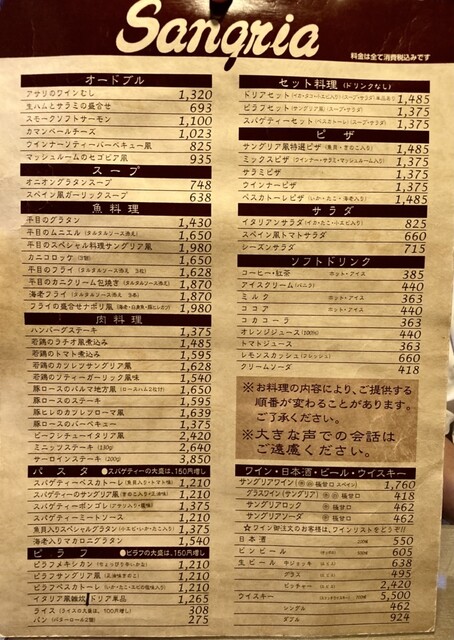 Sangria
料金は全て消費税込みです
オードブル
アサリのワインむし 1,320
生ハムとサラミの盛合せ 693
スモークソフトサーモン 1,100
カマンベールチーズ 1,023
ウインナーソティーバーベキュー風 825
マッシュルームのセゴビア風 935
スープ
オニオングラタンスープ 748
スペイン風ガーリックスープ 638
魚料理
平目のグラタン 1,430
平目のムニエル (タルタルソース添え) 1,650
平目のスペシャル料理サングリア風 1,980
カニコロッケ (2個) 1,650
平目のフライ (タルタルソース添え 3枚) 1,628
平目のカニクリーム包焼き (タルタルソース添え) 1,870
海老フライ (タルタルソース添え 3本) 1,870
フライの盛合せナポリ風 1,980
肉料理
ハンバーグステーキ 1,375
若鶏のラチオ風煮込み 1,485
若鶏のトマト煮込み 1,595
若鶏のカツレツサングリア風 1,628
若鶏のソティーガーリック風味 1,540
豚ロースのパルマ地方風 (ロースハム2枚付) 1,650
豚ロースのステーキ 1,595
豚ヒレのカツレツローマ風 1,639
豚ロースのバーベキュー 1,375
ビーフシチューイタリア風 2,420
ミニッツステーキ (130g) 2,640
サーロインステーキ (200g) 3,850
パスタ ●スパゲティーの大盛は、150円増し
スパゲティーペスカトーレ (魚貝入り・トマト味) 1,210
スパゲティーのサングリア風 1,210
スパゲティーボンゴレ (アサリ入り・塩味) 1,375
スパゲティーミートソース 1,210
貝入りスペシャルグラタン 1,375
海老入りマカロニグラタン 1,540
ピラフ ●ピラフの大盛は、150円増し
ピラフメキシカン 1,210
ピラフサングリア風 1,210
ピラフペスカトーレ 1,210
イタリア風雑炊/ドリア単品 1,265
ライス (ライスの大盛は、100円増し) 308
パン (バターロール2個) 275
セット料理 (ドリンクなし)
ドリアセット 1,485
ピラフセット (サングリア風) (スープ・サラダ) 1,375
スパゲティーセット (ペスカトーレ) (スープ・サラダ) 1,375
ピザ
サングリア風特選ピザ (魚貝・きのこ入り) 1,485
ミックスピザ (ウインナー・サラミ・マッシュルーム入り) 1,375
サラミピザ 1,375
ウインナーピザ 1,375
ペスカトーレピザ (いか・たこ・海老入り) 1,485
サラダ
イタリアンサラダ (いか・たこ・小エビ入り) 825
スペイン風トマトサラダ 660
シーズンサラダ 715
ソフトドリンク
コーヒー・紅茶 ホット・アイス 385
アイスクリーム (バニラ) 440
ミルク ホット・アイス 363
ココア ホット・アイス 440
コカコーラ 363
オレンジジュース (100%) 440
トマトジュース 363
レモンスカッシュ (フレッシュ) 660
クリームソーダ 418
※お料理の内容により、ご提供する
順番が変わることがあります。
ご了承ください。
※大きな声での会話は
ご遠慮ください。
ワイン・日本酒・ビール・ウイスキー
サングリアワイン 極甘口 スペイン 1,760
グラスワイン (サングリア) 極甘口 418
サングリアロック 極甘口 462
サングリアソーダ 極甘口 462
☆ワイン御注文のお客様は、ワインリストをどうぞ!!
日本酒 550
ビンビール 605
生ビール 中ジョッキ 638
グラス 495
ピッチャー 2,420
ウイスキー 5,500
シングル 462
ダブル 924